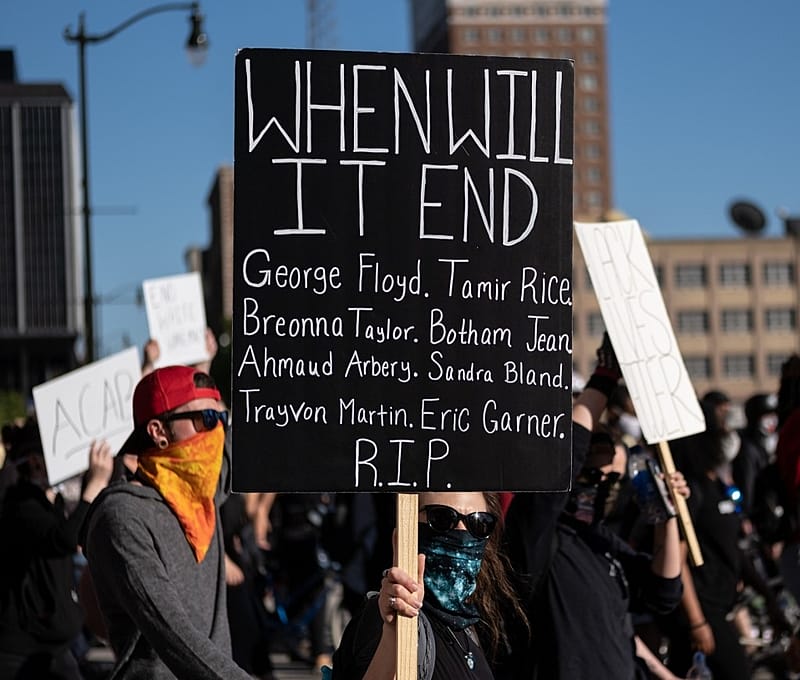 WHEN WILL
IT END
George Floyd. Tamir Rice.
Breonna Taylor. Botham Jean
Ahmaud Arbery. Sandra Bland.
Trayvon Martin. Eric Garner.
R.I.P.
ACAB
END
WHITE